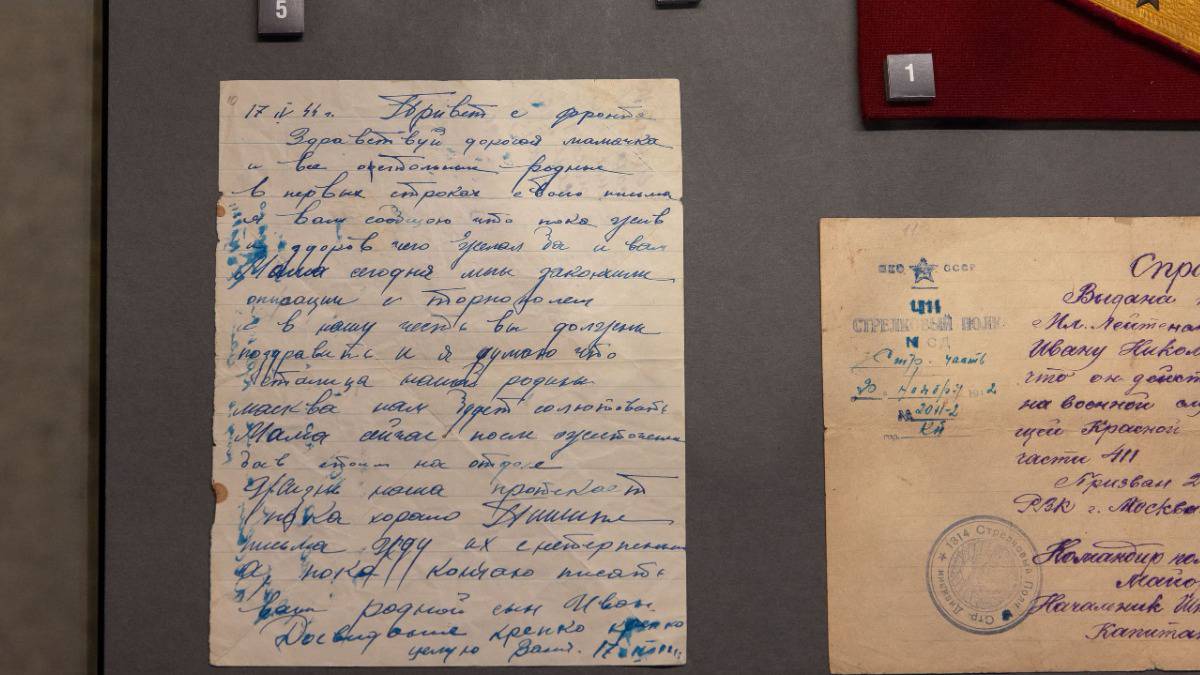 5
1
17 IV 44 г. Привет с фронта
Здравствуй дорогая мамачка
и все остольные родные
В первых строках своего письма
я вам сообщою что пока жив
и здоров чего желал бы и вам
Мама сегодня мы закончили
с Торнополем
и в нашу честь вы должны
поздравить и я думаю что
сталица нашей родины
масква нам будет солютовать
Мама сичас после
боев стоим на отдыхе
Жизнь наша протекает
пока хорошо Пишите
письма жду их с нетерпением
А пока кончаю писать
ваш родной сын Иван.
Досвидание крепко крепко
целую Вас. 17
11
НКО СССР
411
СТРЕЛКОВЫЙ ПОЛК
СД
Стр. часть
20 ноября 1942
№ 2011-2
Спра
Выдана
Мл. Лейтенан
Ивану Никол
что он действ
на военной сл
щей Красной
части 411
Призван 2
РВК г. Москва
Командир пол
Майо
Начальник Шт
Капитан
★ 1314 Стрелковый Полк ★ Стр. Дивизии